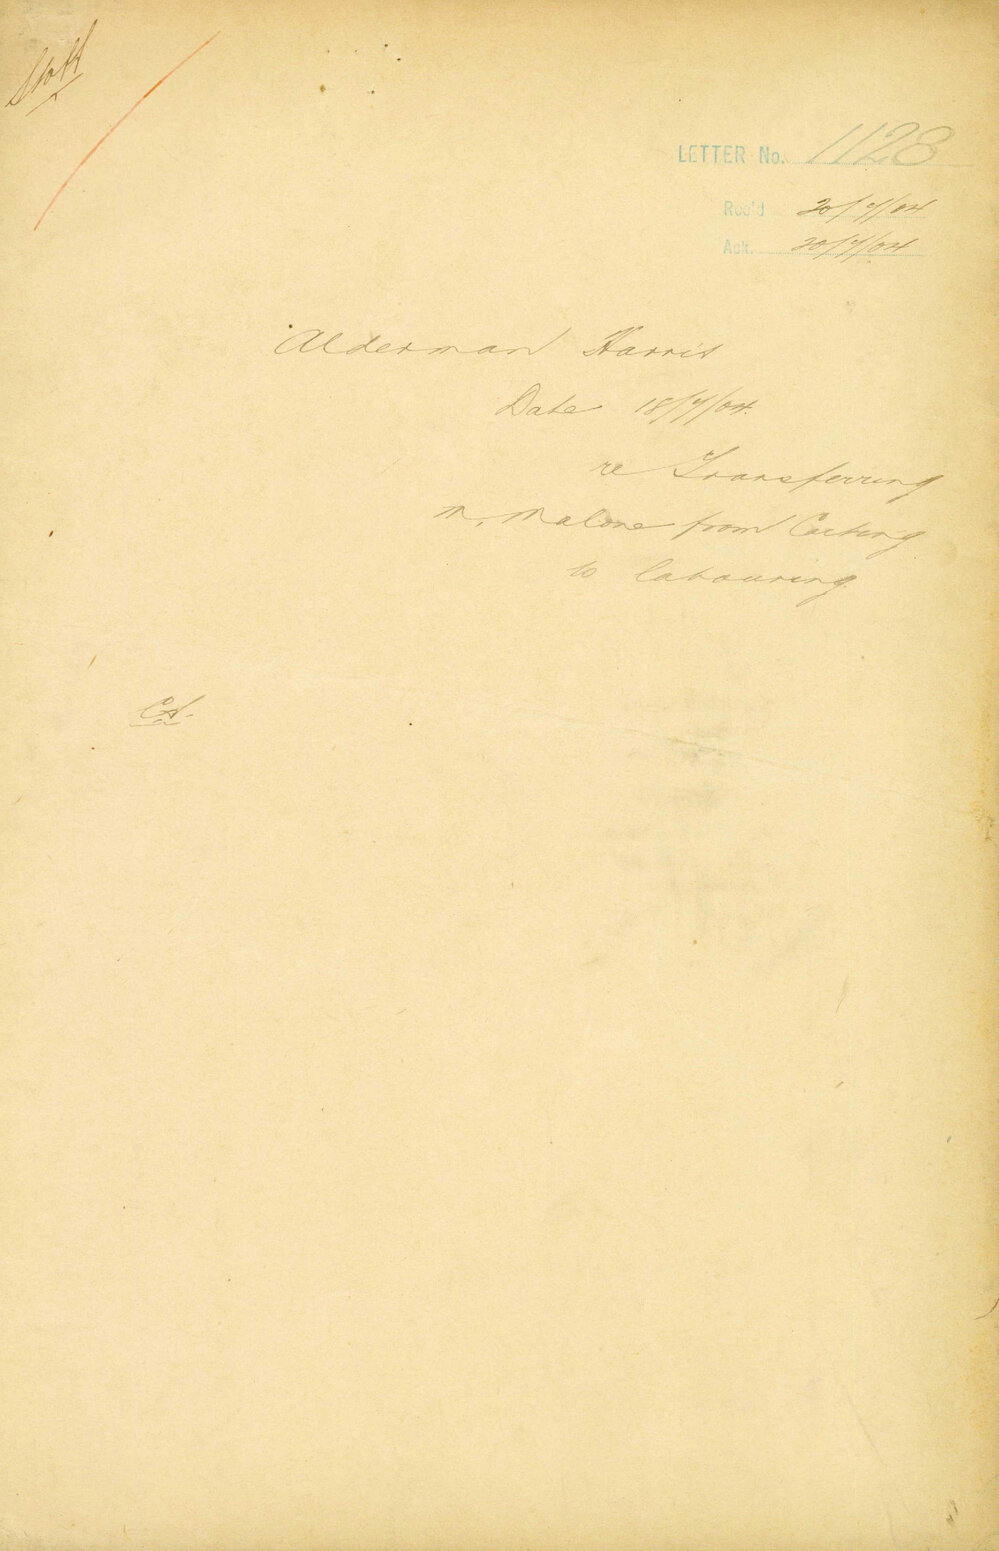 Staff
LETTER No. 1128
Rec'd 20/7/04
Ack. 20/7/04
Alderman Harris
Date 18/7/04.
re Transferring
M. Malone from Carting
to labouring.